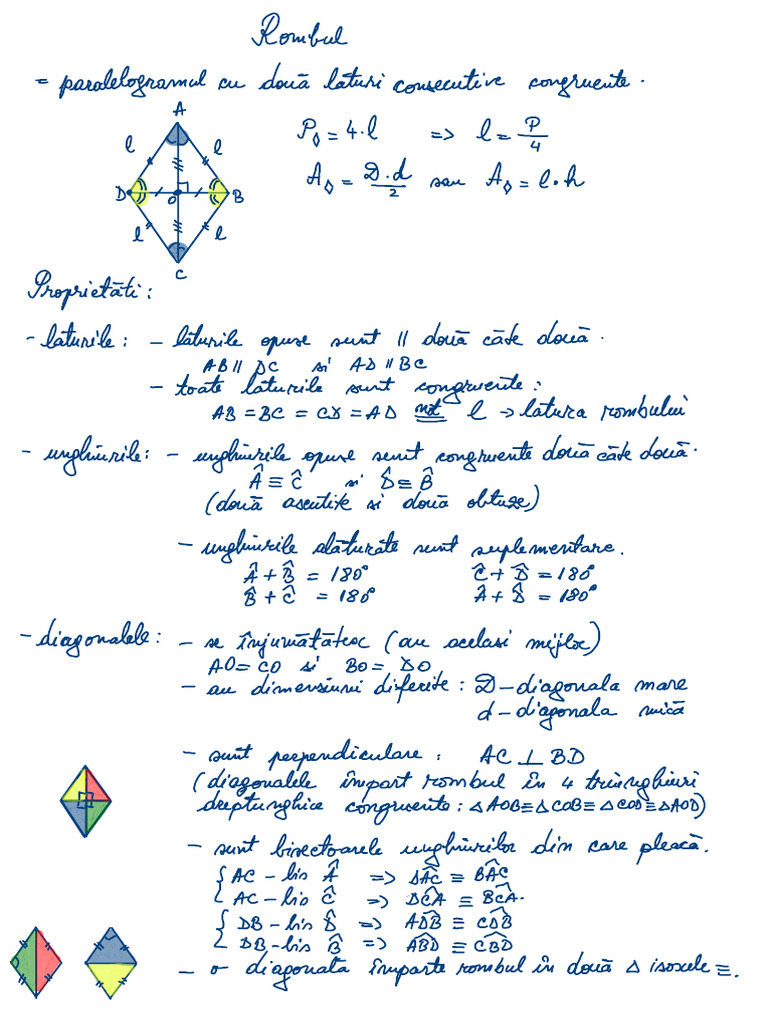 Rombul
= paralelogramul cu două laturi consecutive congruente.
A
l l
D O B
l l
C
P◊ = 4·l => l = P/4
A◊ = D·d/2 sau A◊ = l·h
Proprietăti:
- laturile: - laturile opuse sunt || două câte două.
AB || DC si AD || BC
- toate laturile sunt congruente:
AB = BC = CD = AD not l → latura rombului
- unghiurile: - unghiurile opuse sunt congruente două câte două.
Â ≡ Ĉ si D̂ ≡ B̂
(două ascutite si două obtuze)
- unghiurile alăturate sunt suplementare.
Â + B̂ = 180° Ĉ + D̂ = 180°
B̂ + Ĉ = 180° Â + D̂ = 180°
- diagonalele: - se înjumătătesc (au acelasi mijloc)
AO = CO si BO = DO
- au dimensiuni diferite: D - diagonala mare
d - diagonala mică
- sunt perpendiculare: AC ⊥ BD
(diagonalele împart rombul în 4 triunghiuri
dreptunghice congruente: △AOB ≡ △COB ≡ △COD ≡ △AOD)
- sunt bisectoarele unghiurilor din care pleacă.
{ AC - bis Â => DÂC ≡ BÂC
AC - bis Ĉ => DĈA ≡ BĈA.
{ DB - bis D̂ => AD̂B ≡ CD̂B
DB - bis B̂ => AB̂D ≡ CB̂D
- o diagonala împarte rombul în două △ isoscele ≡.